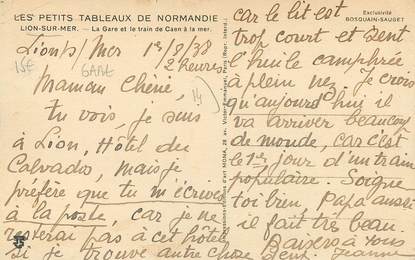 LES PETITS TABLEAUX DE NORMANDIE
LION-SUR-MER. — La Gare et le train de Caen à la mer.
Exclusivité
BOSQUAIN-SAUGET
15€
GARE
14
Lion s/Mer 1er/8/38
2 heures
Maman Chérie,
Tu vois, je suis
à Lion, Hôtel du
Calvados, mais je
préfère que tu m'écrives
à la poste, car je ne
resterai pas à cet hôtel
si je trouve autre chose
car le lit est
trop court et sent
l'huile camphrée
à plein nez. Je crois
qu'aujourd'hui il
va arriver beaucoup
de monde, car c'est
le 1er jour d'un train
populaire. Soigne
toi bien, Papa aussi
il fait très beau.
Baisers à vous
deux. Jeanne